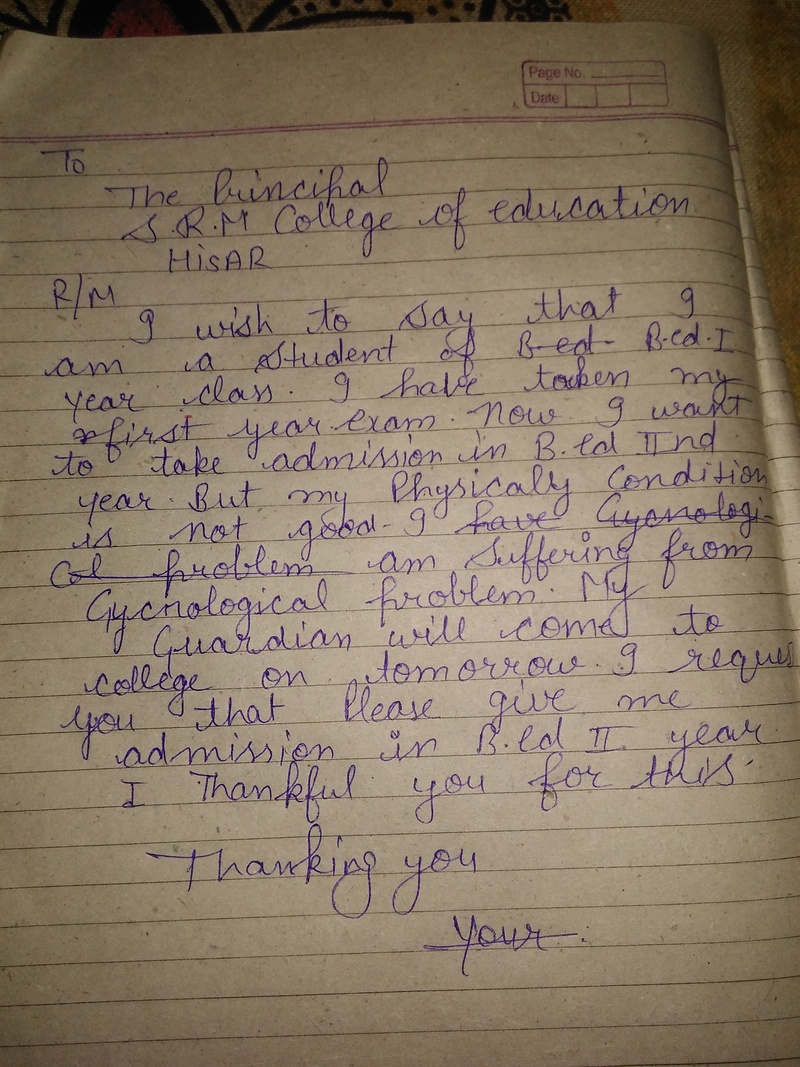 Page No.
Date
To
The Principal
S.R.M College of education
HISAR
R/M
I wish to say that I
am a student of B-ed- B.ed.I
year class. I have taken my
first year exam. Now I want
to take admission in B.ed IInd
year. But my Physically Condition
is not good. I have Gycnologi-
Cal problem am suffering from
Gycnological problem. My
Guardian will come to
college on tomorrow. I reques
you that Please give me
admission in B.ed II year
I Thankful you for this.
Thanking you
Your